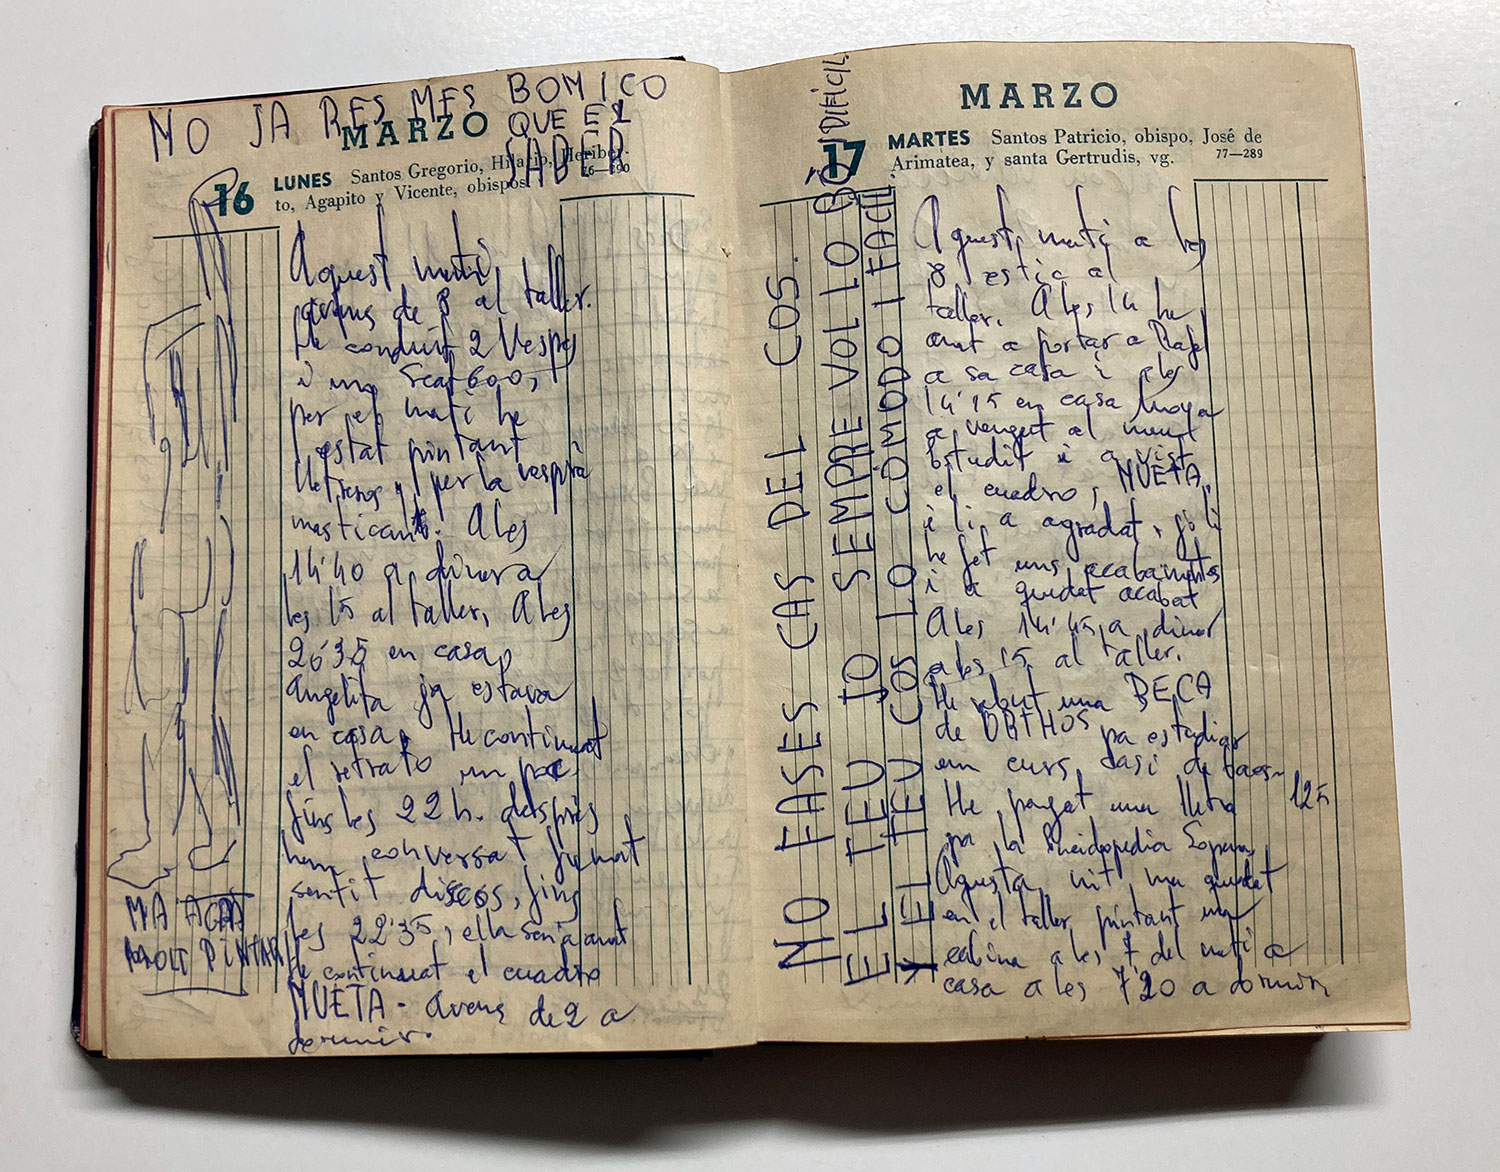 NO JA RES MES BOMICO
QUE EL
SABER
MARZO
16 LUNES Santos Gregorio, Hilario, Heriber-
to, Agapito y Vicente, obispos. 76—290
Aquest matí
de 8 al taller.
He conduit 2 Vespes
i un Seat 600,
per el matí he
estat pintant
lletreros y per la vesprà
masticant. A les
14'40 a dinar a
les 15 al taller, A les
20'35 en casa,
Angelita ja estava
en casa, He continuat
el retrato un poc
fins les 22 h. despres
hem conversat fumat
sentit discos, fins
les 22'35, ella sen ja anat
He continuat el cuadro
MUETA - avens de 2 a
dormir.
MA AGRÀ
MOLT PINTAR
MARZO
17 MARTES Santos Patricio, obispo, José de
Arimatea, y santa Gertrudis, vg. 77—289
NO FASES CAS DEL COS.
EL TEU JO SEMPRE VOL LO BÓ I DIFICIL
Y EL TEU COS LO CÒMODO I FACIL
Aquest matí a les
8 estic al
taller. A les 14 he
anat a portar a Rafel
a sa casa i a les
14'15 en casa Moya
a vengut al meu
Estudit i a vist
el cuadro, MUETA,
i li a agradat, jo li
he fet uns acabamentes
i a quedat acabat
A les 14'45 a dinar
a les 15 al taller.
He rebut una BECA
de pa estudiar
un curs, dasi de
He pagat una lletra 125
pa la Enciclopedia Sopena,
Aquesta nit, ma quedat
en el taller pintant una
cabina a les 7 del matí a
casa a les 7'20 a dormir